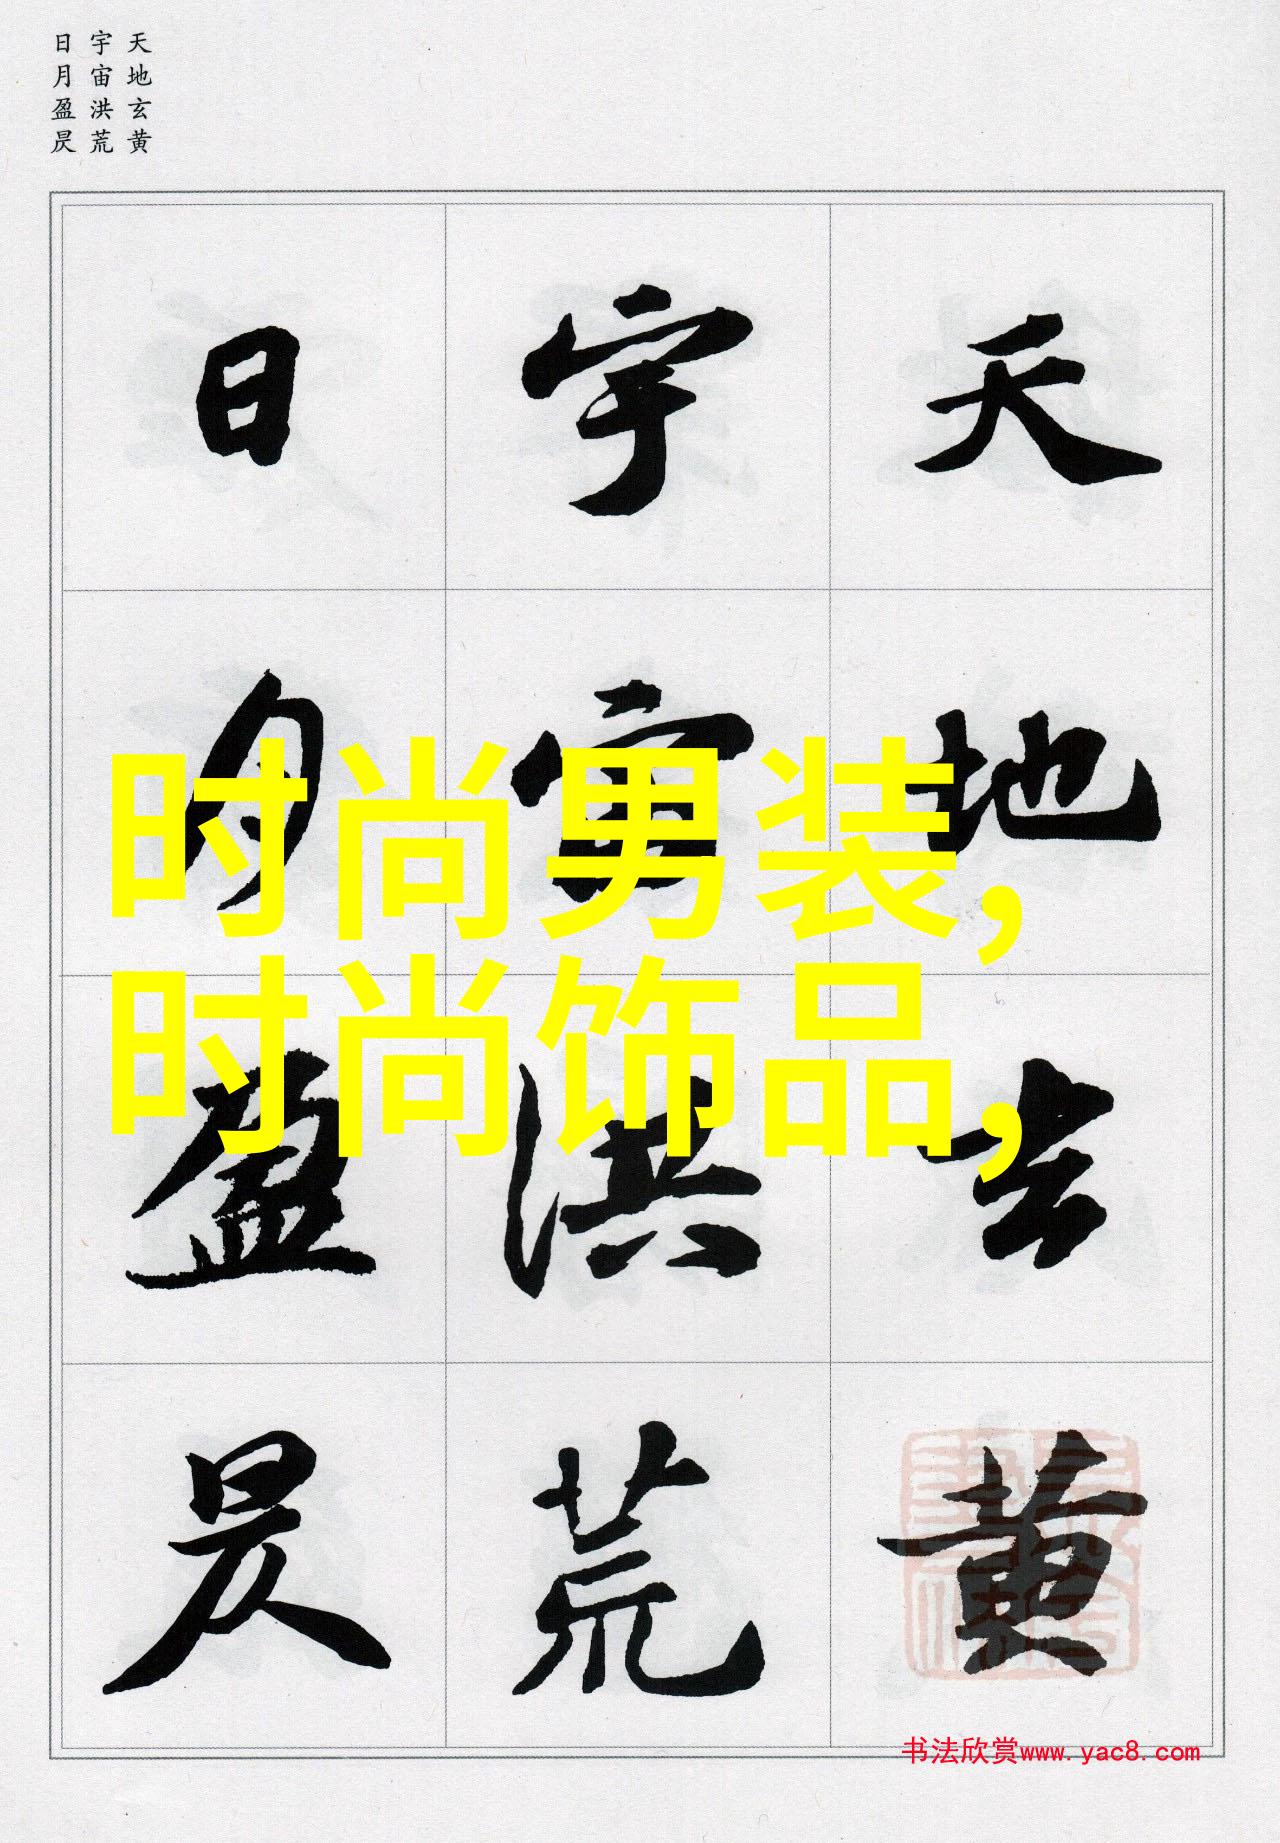 天地玄黄
宇宙洪荒
日月盈昃
天地玄黄
宇宙洪荒
日月盈昃
时尚男装,
时尚饰品,
书法欣赏www.yac8.com